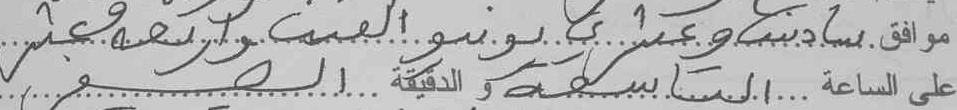 موافق سادس وعشرين يونيو ألفين وأربعة عشر
على الساعة التاسعة و الدقيقة الصفر